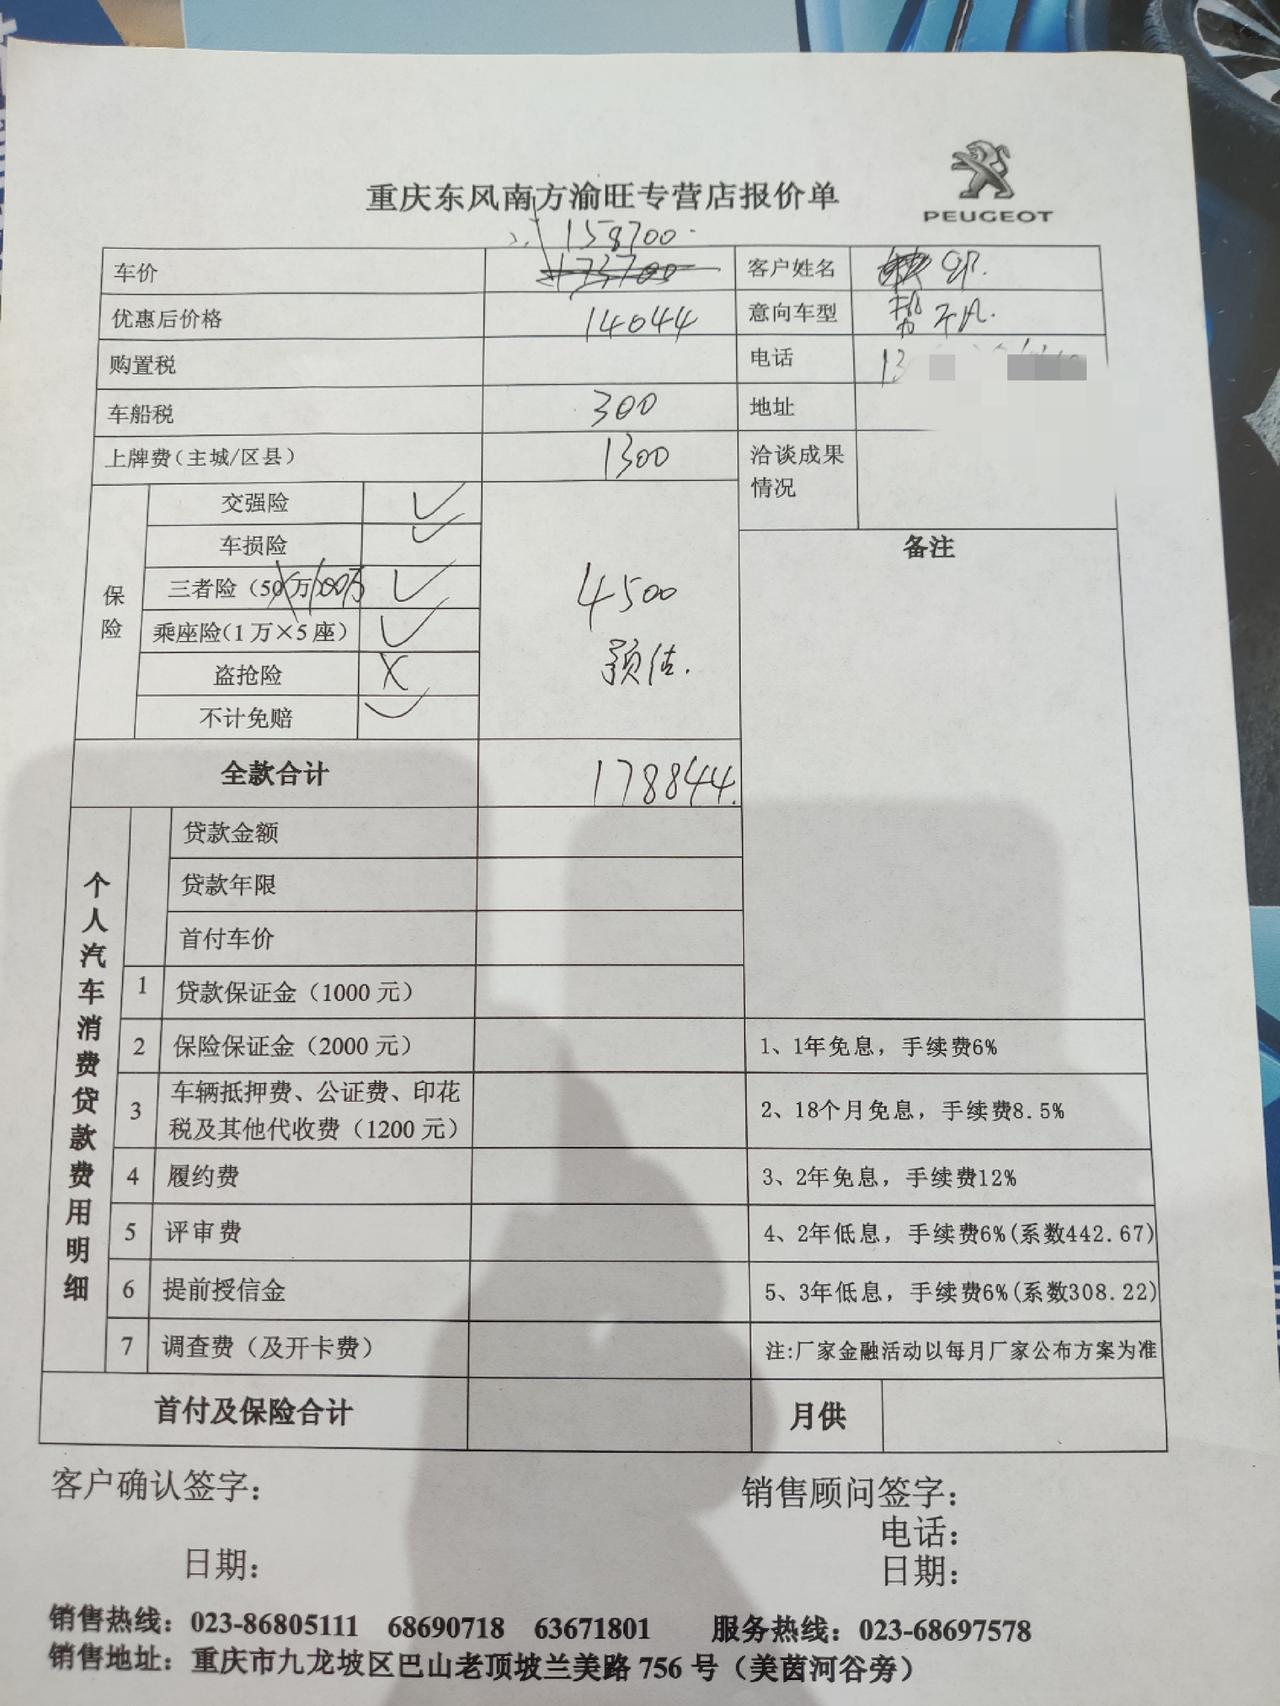 PEUGEOT
重庆东风南方渝旺专营店报价单
158700
车价 173700 客户姓名
优惠后价格 14044 意向车型
购置税 电话 13
车船税 300 地址
上牌费(主城/区县) 1300 洽谈成果情况
保险
交强险 ✓
车损险 ✓
三者险(50万 100万 ✓
乘座险(1万×5座) ✓
盗抢险 X
不计免赔 ✓
4500
预估.
备注
全款合计 178844.
个人汽车消费贷款费用明细
贷款金额
贷款年限
首付车价
1 贷款保证金(1000元)
2 保险保证金(2000元) 1、1年免息,手续费6%
3 车辆抵押费、公证费、印花税及其他代收费(1200元) 2、18个月免息,手续费8.5%
4 履约费 3、2年免息,手续费12%
5 评审费 4、2年低息,手续费6%(系数442.67)
6 提前授信金 5、3年低息,手续费6%(系数308.22)
7 调查费(及开卡费) 注:厂家金融活动以每月厂家公布方案为准
首付及保险合计 月供
客户确认签字: 销售顾问签字:
电话:
日期: 日期:
销售热线:023-86805111 68690718 63671801 服务热线:023-68697578
销售地址:重庆市九龙坡区巴山老顶坡兰美路756号(美茵河谷旁)